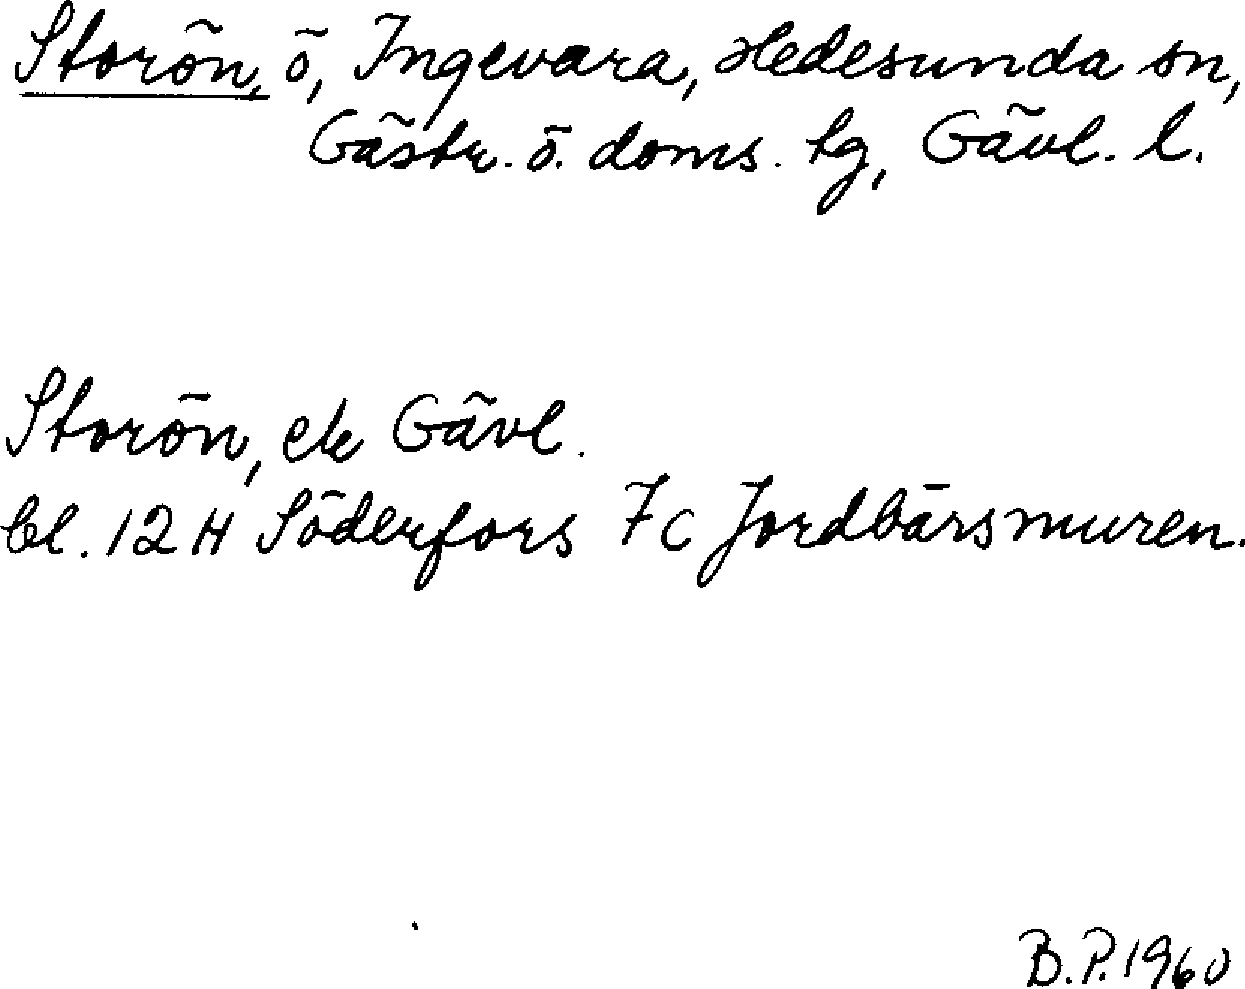 Storön, ö, Ingevara, Hedesunda sn,
Gästr. ö. doms. tg, Gävl. l.
Storön, ek Gävl.
bl. 12 H Söderfors 7c Jordbärsmuren.
B.P. 1960